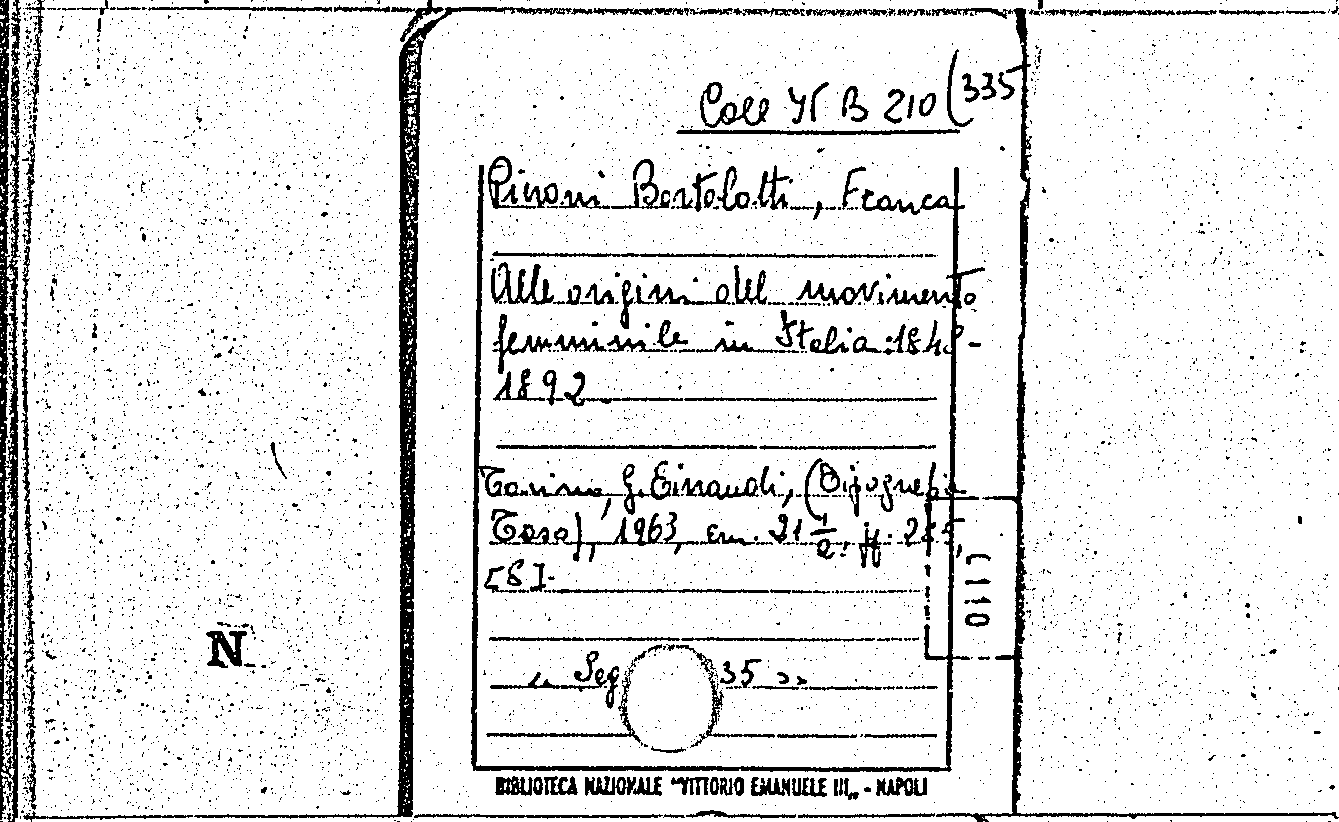 Coll. VI B 210 (335
Pieroni Bortolotti, Franca
Alle origini del movimento
femminile in Italia: 1848-
1892.
Torino, G. Einaudi, (Tipografia
Toso), 1963, cm. 21 ½. pp. 285,
[8].
« Seg 35 »
(110
N
BIBLIOTECA NAZIONALE "VITTORIO EMANUELE III„ - NAPOLI